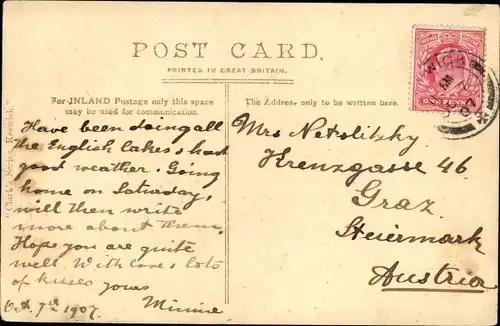 POST CARD.
PRINTED IN GREAT BRITAIN.
For INLAND Postage only this space
may be used for communication.
The Address only to be written here.
"Clark's Series, Keswick."
Have been doing all
the English lakes & had
good weather. Going
home on Saturday,
will then write
more about them.
Hope you are quite
well. With love & lots
of kisses yours
Minnie
Oct. 7th 1907.
Mrs Netolitzky
Krenzgasse 46
Graz
Steiermark
Austria
ONE PENNY
07